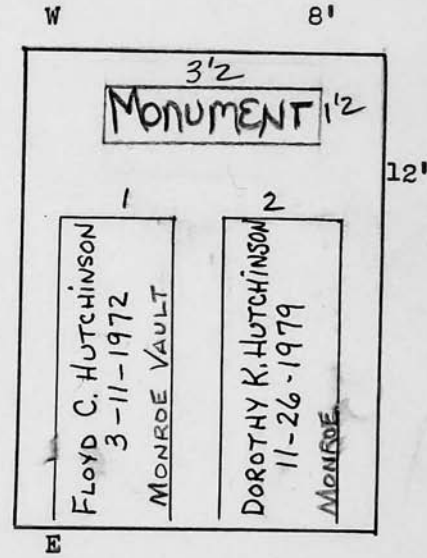 W 8'
3'2
MONUMENT 1'2
12'
1 2
FLOYD C. HUTCHINSON
3-11-1972
MONROE VAULT
DOROTHY K. HUTCHINSON
11-26-1979
MONROE
E